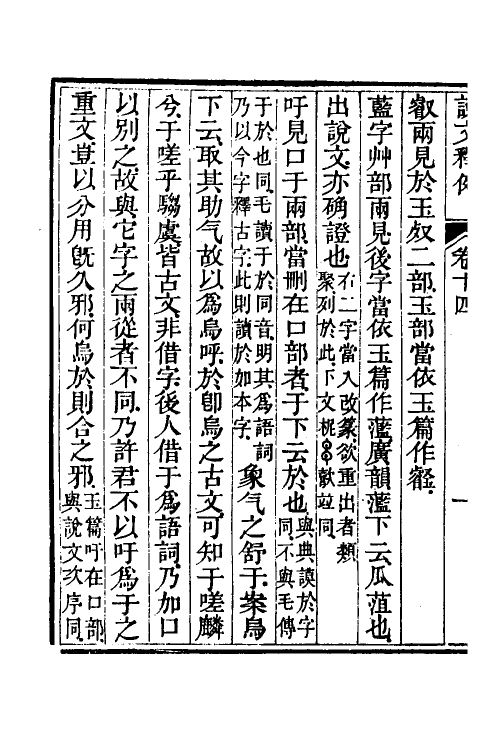 說文釋例 卷十四 一
叡兩見於玉𣦻二部玉部當依玉篇作
藍字艸部兩見後字當依玉篇作蘫廣韻蘫下云瓜菹也
出說文亦碻證也右二字當入改篆欲重出者類
聚列於此下文竝同
吁見口于兩部當刪在口部者于下云於也與典謨於字
同不與毛傳
于於也同毛讀于於同音明其爲語詞
乃以今字釋古字此則讀於如本字象气之舒于案烏
下云取其助气故以爲烏呼於卽烏之古文可知于嗟麟
兮于嗟乎騶虞皆古文非借字後人借于爲語詞乃加口
以別之故與它字之兩從者不同乃許君不以吁爲于之
重文豈以分用旣久邪何烏於則合之邪玉篇吁在口部
與說文次序同